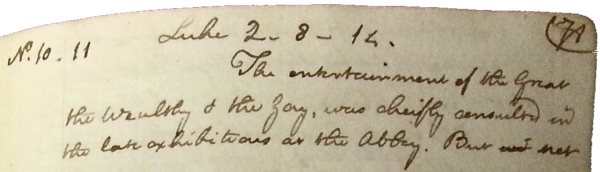 Nº. 10 - 11 Luke 2 - 8 - 14. 71
The entertainment of the Great
the Wealthy & the Gay, was cheifly consulted in
the late exhibitions at the Abbey. But not